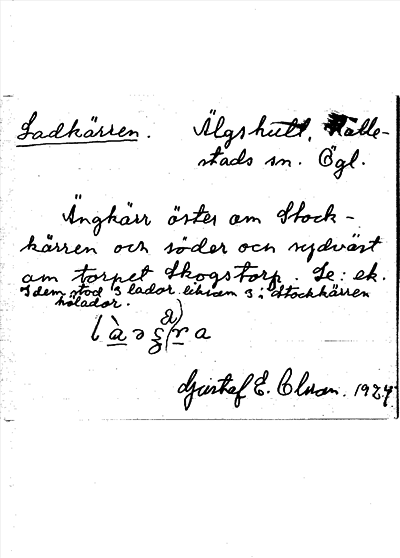 Ladkärren. Älgshult, Hälle-
stads sn. Ögl.
Ängkärr öster om Stock-
kärren och söder och sydväst
om torpet Skogstorp. Se: ek.
I dem stod 3 lador liksom 3 i Stockkärren
hölador.
Gustaf E. Olsson. 1924